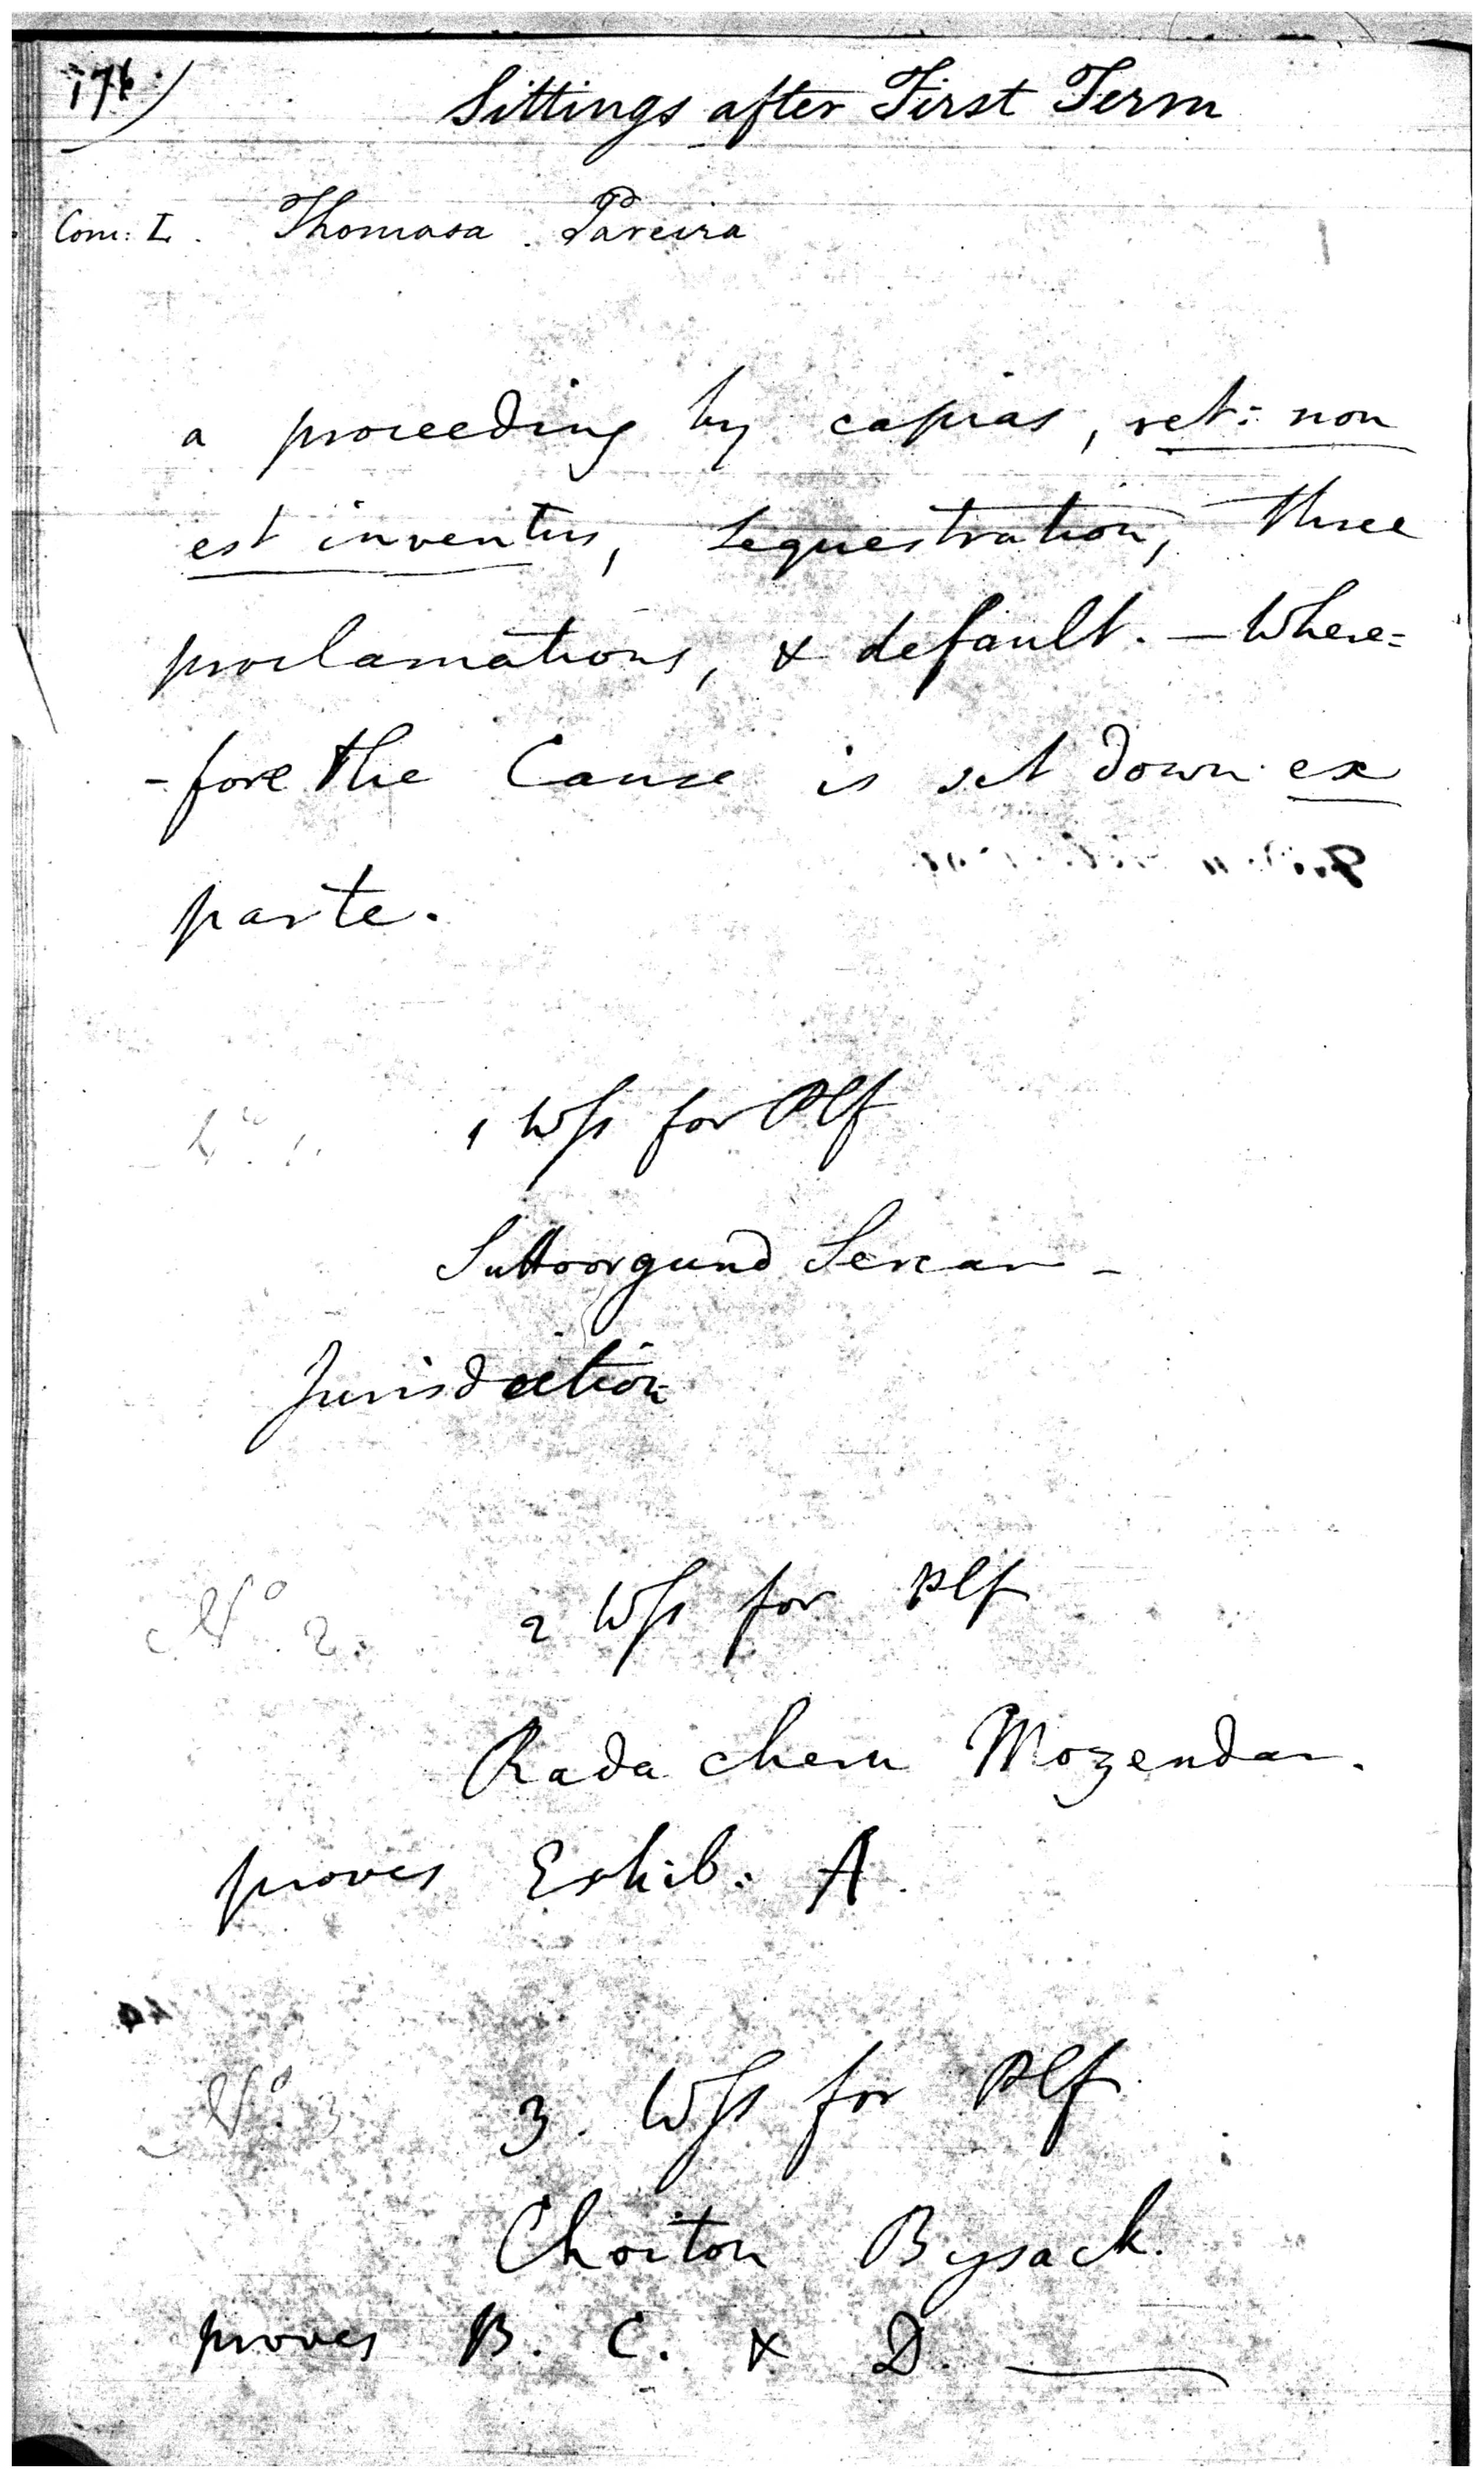 176)
Sittings after First Term
Com: L. Thomasa Pareira
a proceeding by capias, ret: non
est inventus, Sequestration, three
proclamations, & default. — Where=
-fore the Cause is set down ex
parte.
No 1.
1 Wss for Plf
Suttoorgund Sercar -
Jurisdiction
No 2.
2 Wss for Plf
Rada churn Mozendar.
proves Exhib: A.
No. 3
3. Wss for Plf
Choiton Bysack.
proves B. C. & D. —